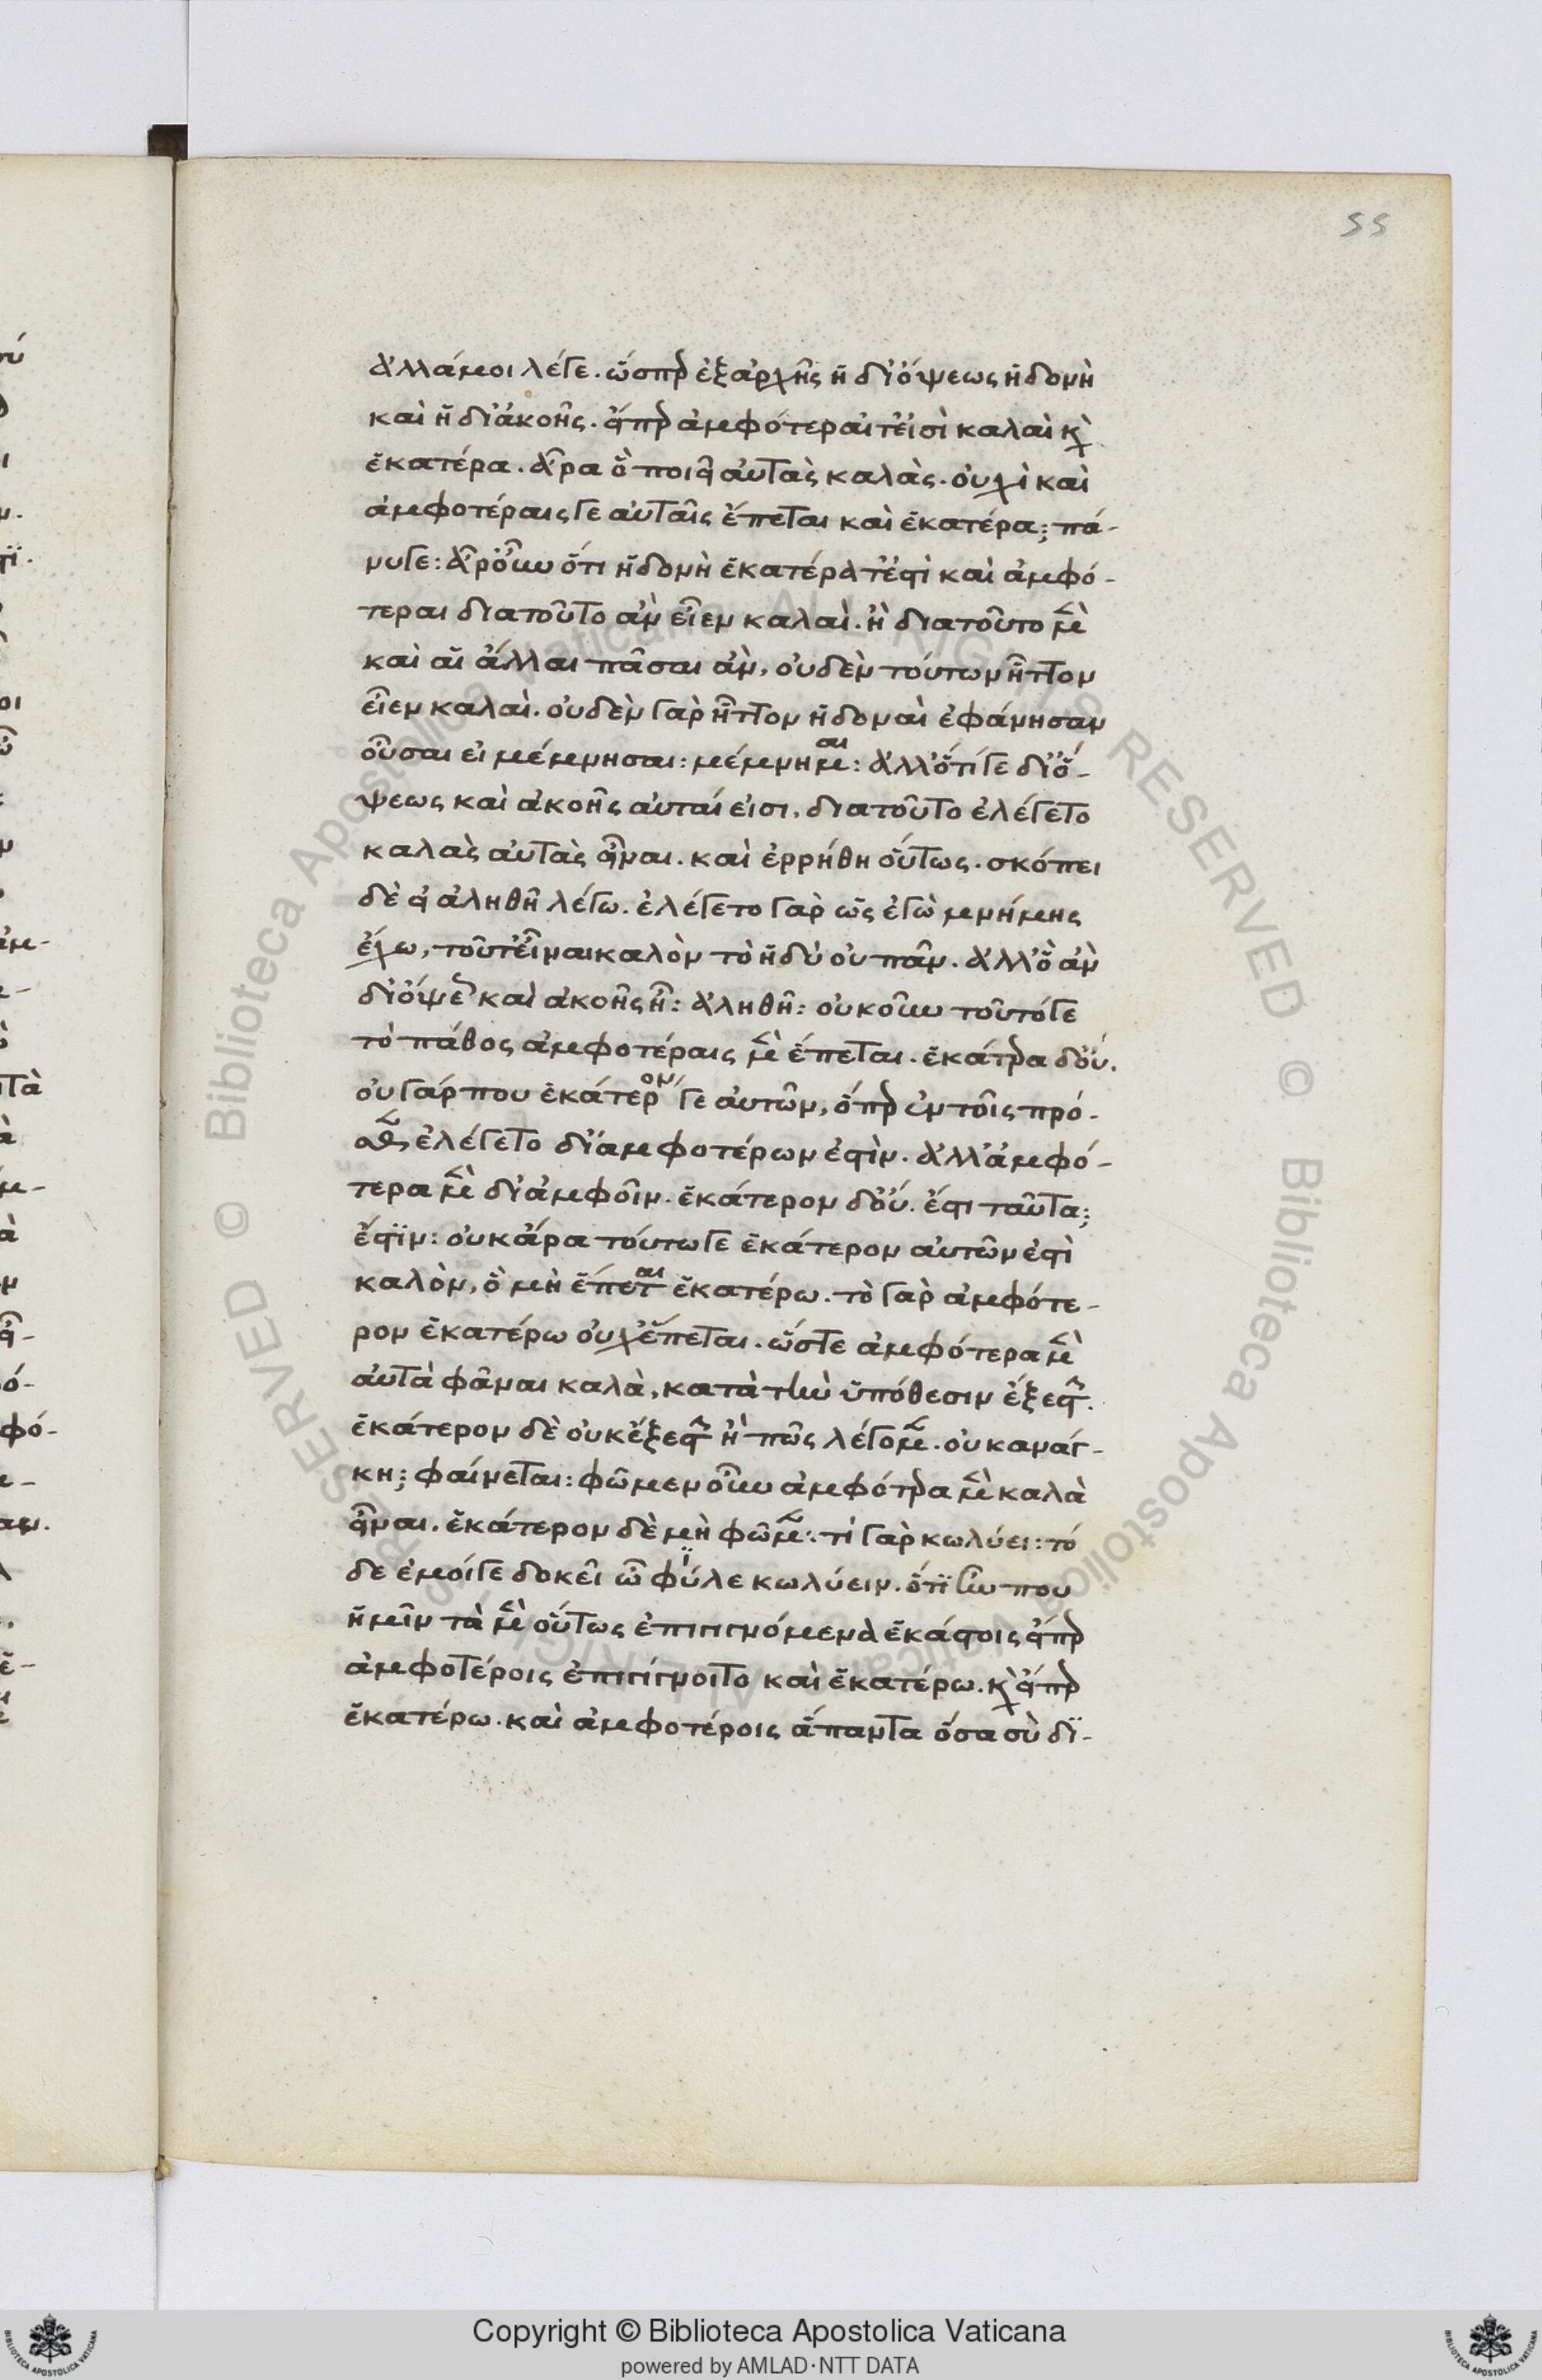 55
ἀλλά μοι λέγε. ὥσπερ ἐξαρχῆς ἡ δι' ὄψεως ἡδονὴ
καὶ ἡ δι' ἀκοῆς. εἴπερ ἀμφότεραί τ' εἰσὶ καλαὶ κ(αὶ)
ἑκατέρα. ἆρα ὃ ποιεῖ αὐτὰς καλὰς. οὐχὶ καὶ
ἀμφοτέραις γε αὐταῖς ἕπεται καὶ ἑκατέρα; πά-
νυ γε: ἆρ' οὖν ὅτι ἡδονὴ ἑκατέρα τ' ἐστὶ καὶ ἀμφό-
τεραι διατοῦτο ἂν εἶεν καλαὶ. ἢ διατοῦτο μὲν
καὶ αἱ ἄλλαι πᾶσαι ἂν, οὐδὲν τούτων ἧττον
εἶεν καλαὶ. οὐδὲν γὰρ ἧττον ἡδοναὶ ἐφάνησαν
οὖσαι εἰ μέμνησαι: μέμνημαι: ἀλλ' ὅτι γε δι' ὄ-
ψεως καὶ ἀκοῆς αὗταί εἰσι, διατοῦτο ἐλέγετο
καλὰς αὐτὰς εἶναι. καὶ ἐρρήθη οὕτως. σκόπει
δὲ εἰ ἀληθῆ λέγω. ἐλέγετο γὰρ ὡς ἐγὼ μνήμης
ἔχω, τοῦτ' εἶναι καλὸν τὸ ἡδύ οὐ πᾶν. ἀλλ' ὃ ἂν
δι' ὄψεως καὶ ἀκοῆς ἦ: ἀληθῆ: οὐκοῦν τοῦτό γε
τὸ πάθος ἀμφοτέραις μὲν ἕπεται. ἑκάτερα δ' οὔ.
οὐ γάρ που ἑκάτερον γε αὐτῶν, ὅπερ ἐν τοῖς πρό-
σθεν ἐλέγετο δι' ἀμφοτέρων ἐστὶν. ἀλλ' ἀμφό-
τερα μὲν δι' ἀμφοῖν. ἑκάτερον δ' οὔ. ἔστι ταῦτα;
ἔστιν: οὐκ ἄρα τούτω γε ἑκάτερον αὐτῶν ἐστὶ
καλὸν, ὃ μὴ ἕπεται ἑκατέρω. τὸ γὰρ ἀμφότε-
ρον ἑκατέρω οὐχ ἕπεται. ὥστε ἀμφότερα μὲν
αὐτὰ φᾶναι καλὰ, κατὰ τὴν ὑπόθεσιν ἔξεστιν.
ἑκάτερον δὲ οὐκ ἔξεστιν ἢ πῶς λέγομεν. οὐκ ανάγ-
κη; φαίνεται: φῶμεν οὖν ἀμφότερα μὲν καλὰ
εἶναι. ἑκάτερον δὲ μὴ φῶμεν: τί γὰρ κωλύει: τό
δε ἐμοίγε δοκεῖ ὦ φίλε κωλύειν. ὅτι ἦν που
ἡμῖν τὰ μὲν οὕτως ἐπιγιγνόμενα ἑκάστοις εἴπερ
ἀμφοτέροις ἐπιγίγνοιτο καὶ ἑκατέρω. κ(αὶ) εἴπερ
ἑκατέρω. καὶ ἀμφοτέροις ἅπαντα ὅσα σὺ δι-
Copyright © Biblioteca Apostolica Vaticana
powered by AMLAD·NTT DATA